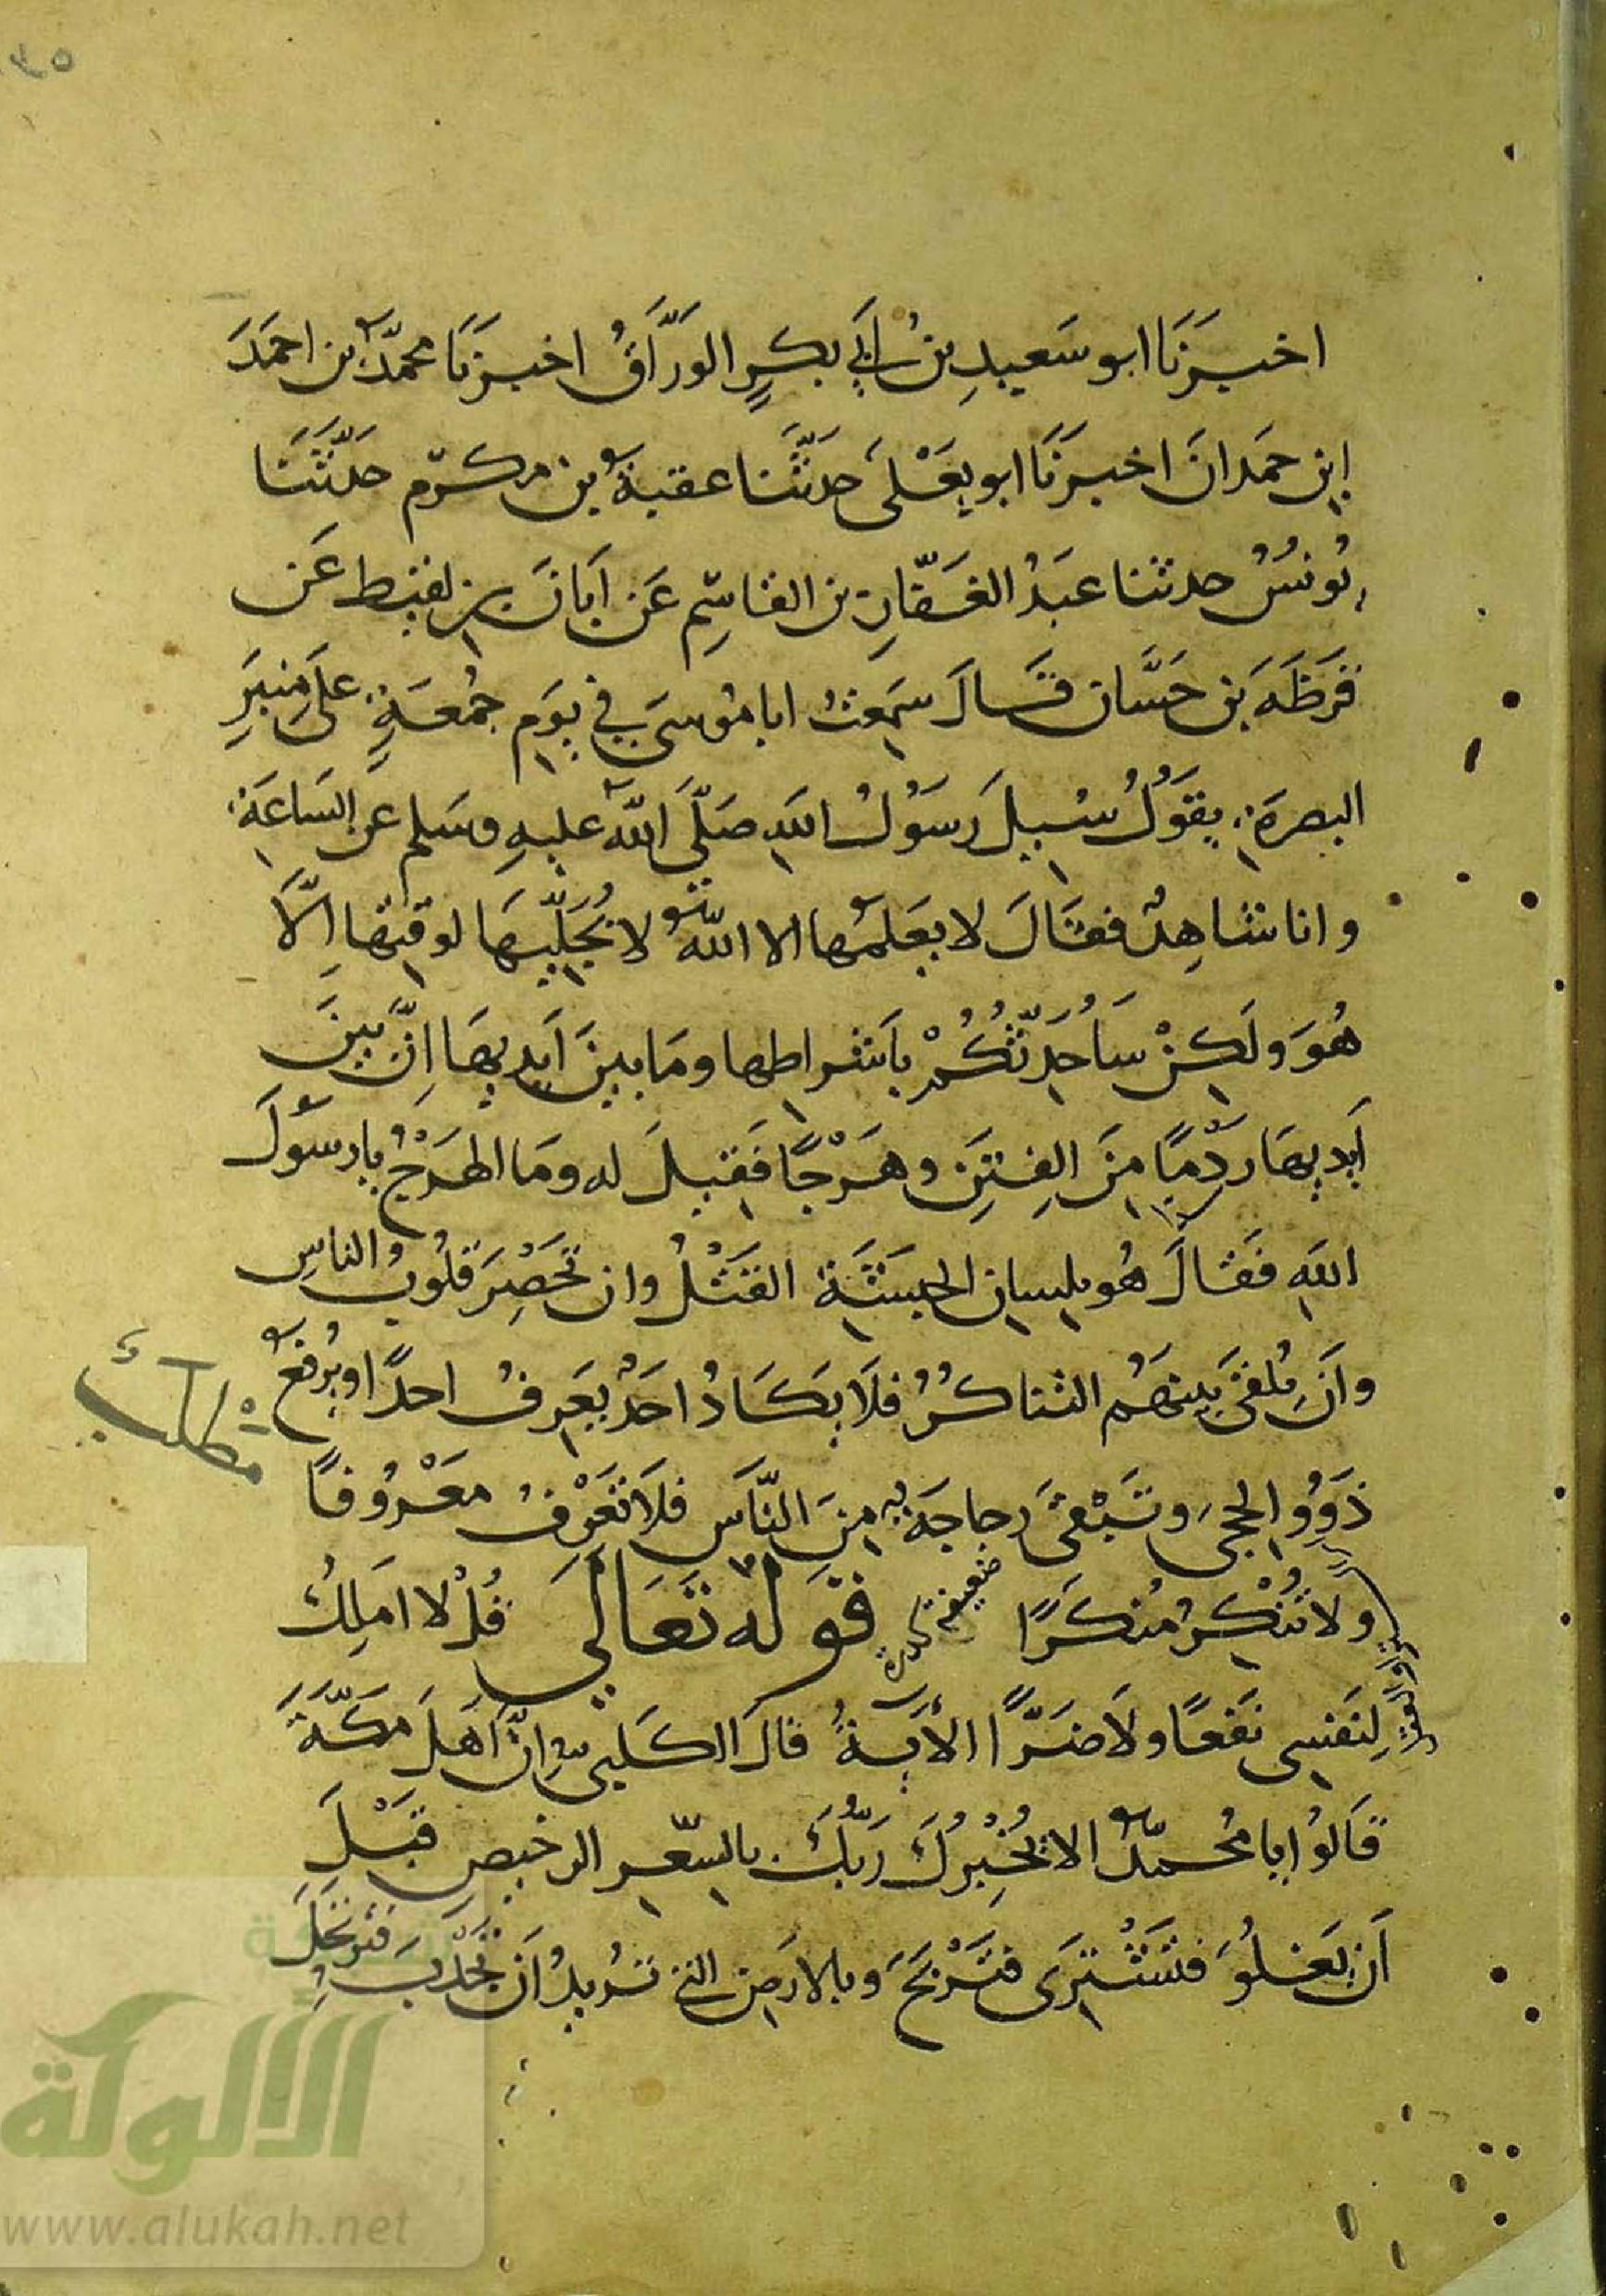 اخبرَنَا ابو سَعيدِ بنُ ابي بكرٍ الورَّاقُ اخبرَنَا محمّد بن احمَدَ
ابن حمَدانَ اخبرَنَا ابو يَعْلىَ حَدثَّنا عقبة بن مكرّم حَدَّثَنَا
يُونسُ حدثنا عَبدُ الغَفّارِ بن القاسِم عَن اَبَانَ بن لقيط عَن
قَرَظَهَ بن حَسَّان قَالَ سَمِعتُ ابا موُسىَ في يوَم جُمعَةٍ على مِنبَرِ
البصرَة يقوَلُ سُيلَ رسَوُلُ اللهِ صَلّىَ الله عليهِ وسَلم عن السَاعَة
وانا شاهِدٌ فقالَ لا يعَلمها الا اللهُ لا يُجَلّيهَا لوقتها اِلّاَ
هُوَ ولَكِنْ سَاُحَدِّثُكُمْ باَشراطها ومَا بينَ اَيديهَا اِنَّ بينَ
اَيديهَا ردْمًا منَ الِفتنَِ وهَرْجًا فَقيلَ له ومَا الهَرْجُ يا رسَوُلَ
اللهِ فَقالَ هُو بلِسانِ الحبشَةِ القَتْلُ وان تَحَصْرَ قلُوبُ الناسِ
واَن يُلقىَ بَينهَمُ التناكرُُ فلَا يَكَادُ احَدٌ يعَرفُ احدًا ويُرفعُ
ذَوُو الحِجىَ وتَبْقىَ رجاجَة منَ النّاسِ فلاَ تعَرْفُ معْرُوفًا
ولا تُنْكِرُ مُنكرًا قوله تعَالي قُلْ لا املِكُ
لِنَفسِى نَفعًا ولاَ ضَرًّا الأيَةُ قالَ الكَلبى انَّ اَهلَ مَكّةَ
قاَلوُا يا مُحمّدُ الا يُخْبرُكَ رَبُّكَ بالسِّعرِ الرخيصِ قَبْلَ
اَن يَغلُوَ فتَشْتَرِى فتَرْبَحَ وبالارَضِ التى تُريدُ اَن تَجْدِبَ فترتحَلَ
مطلب
شبكة
الألوكة
www.alukah.net